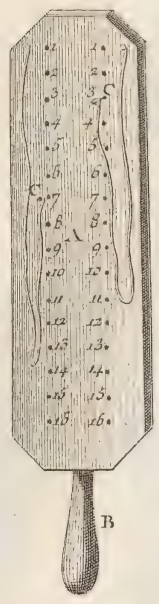 1 1
2 2
3 3 C
4 4
5 5
6 6
C 7 7
8 8
A
9 9
10 10
11 11
12 12
13 13
14 14
15 15
16 16
B